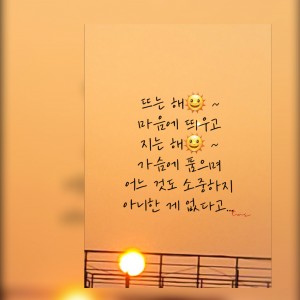 뜨는 해🌞 ~
마음에 띄우고
지는 해🌞 ~
가슴에 품으며
어느 것도 소중하지
아니한 게 없다고...